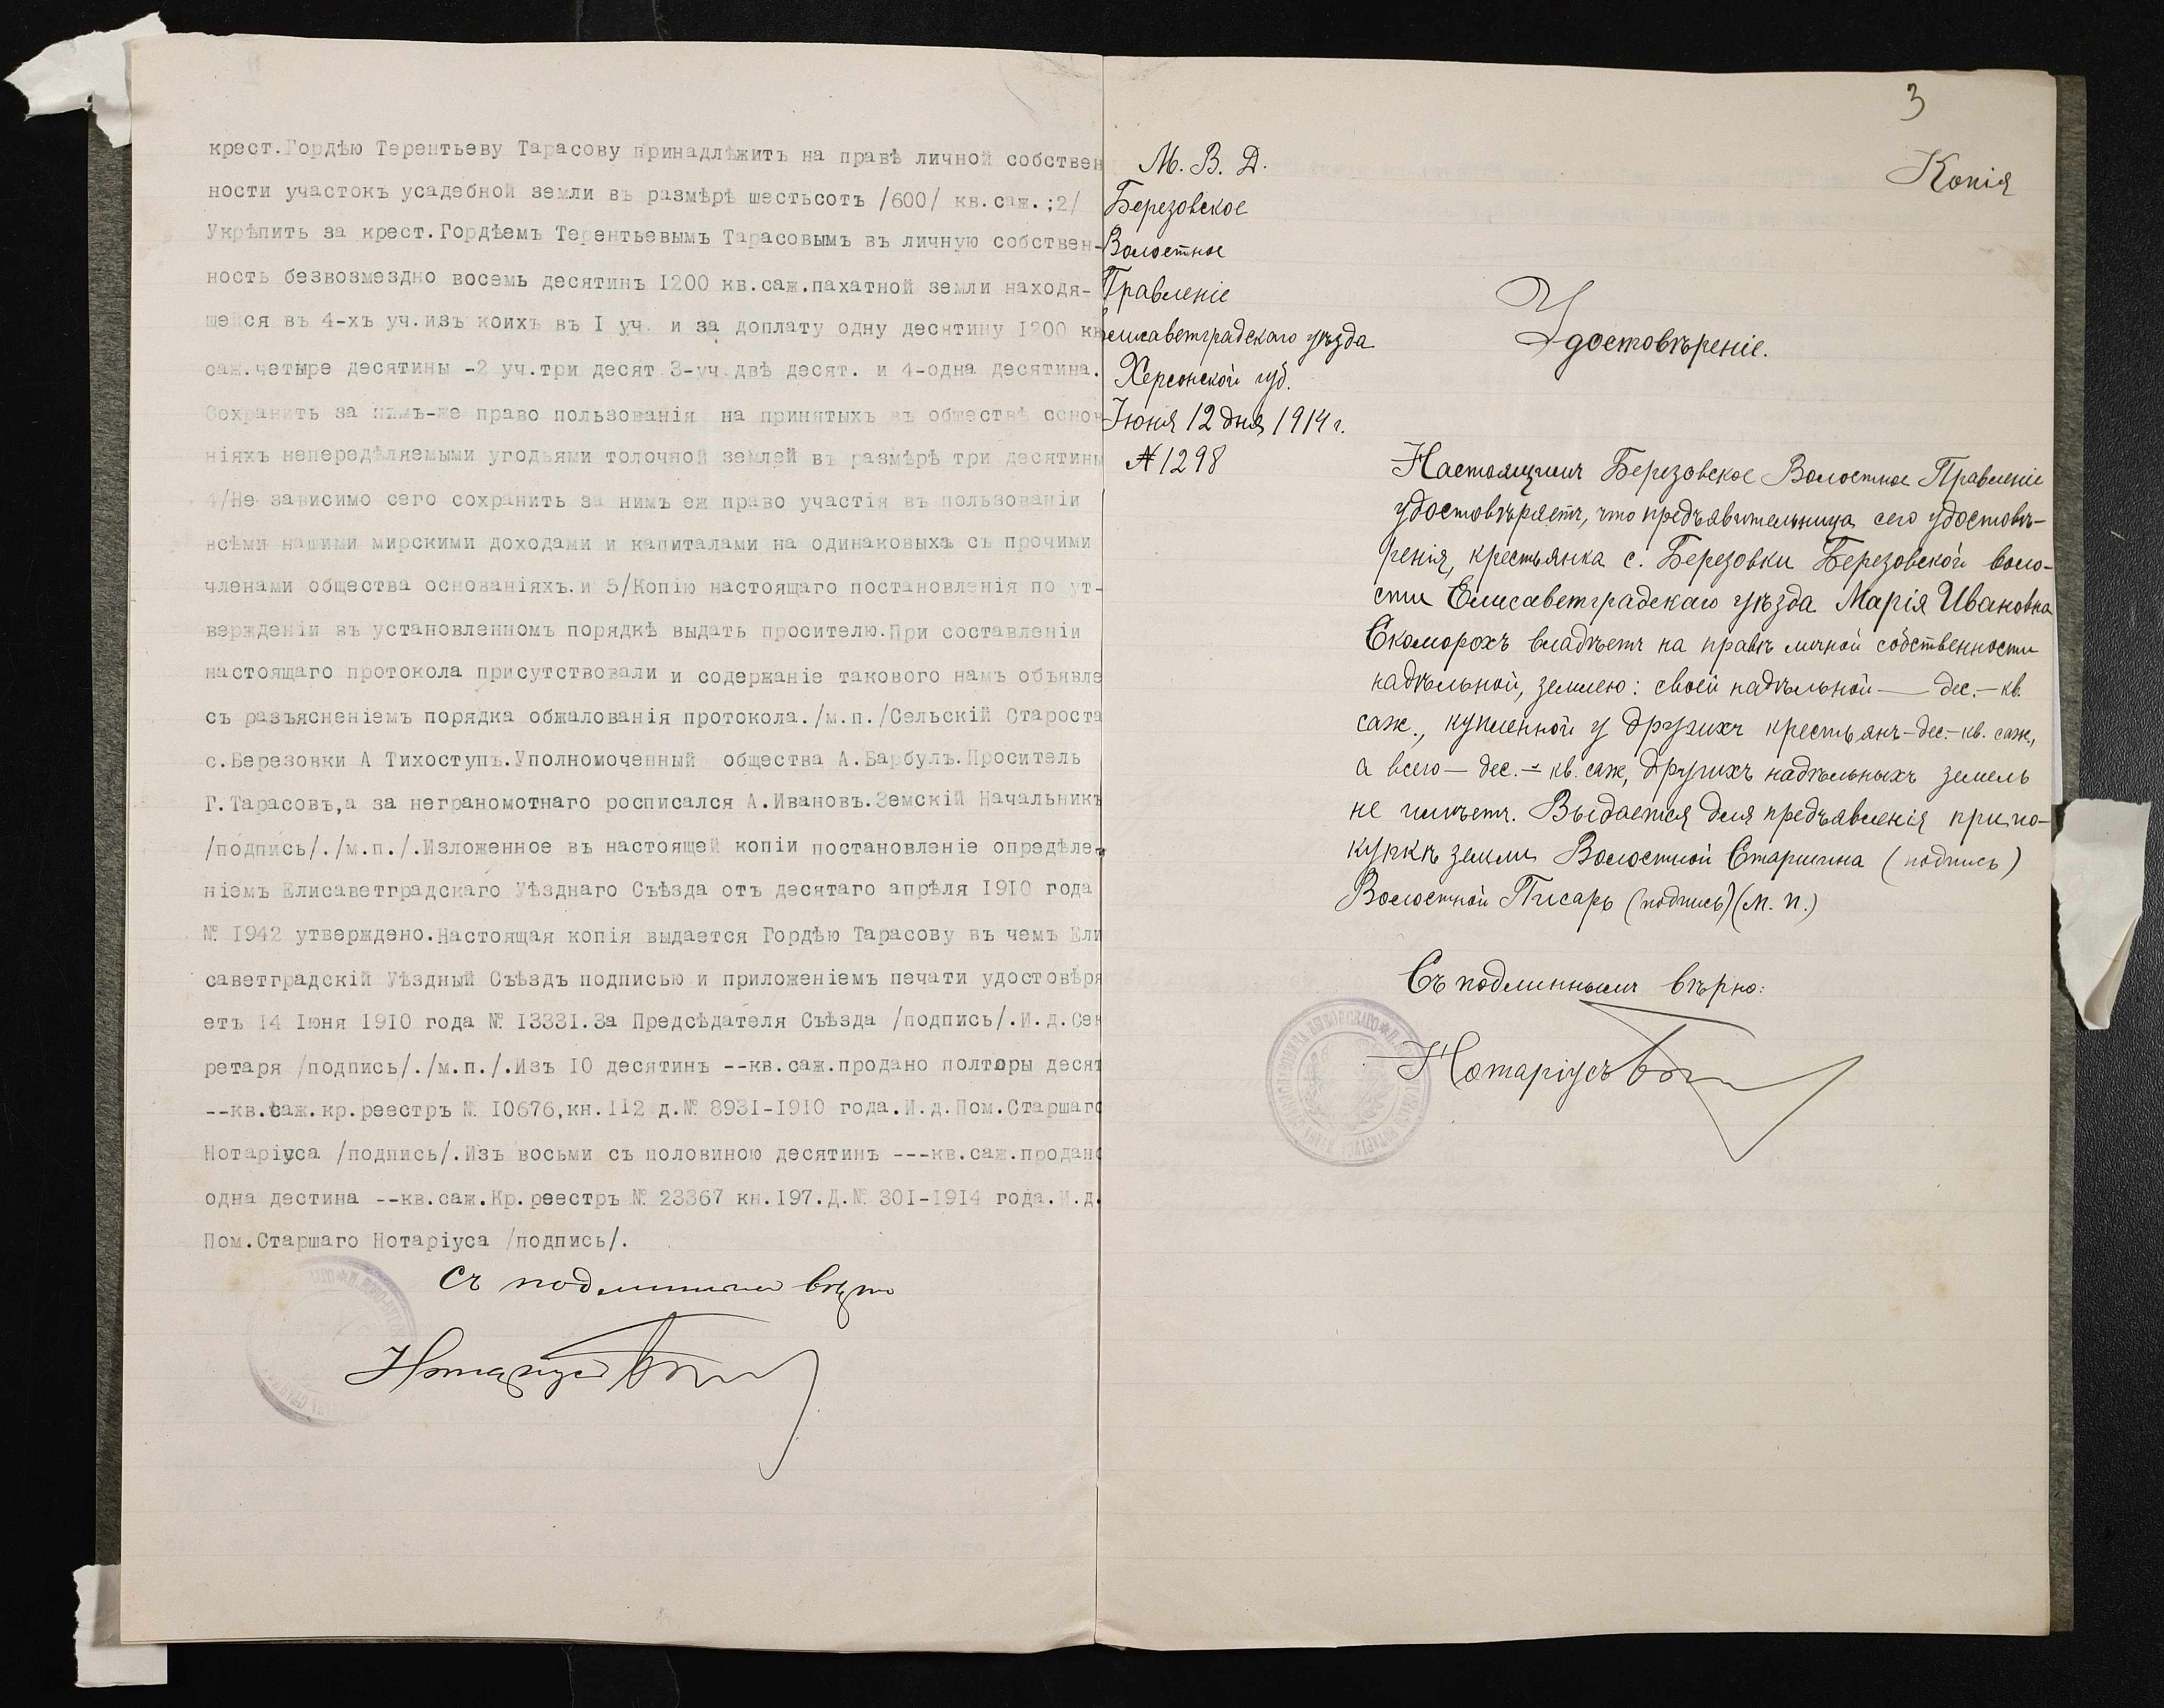 крест.Гордѣю Терентьеву Тарасову принадлѣжитъ на правѣ личной собствен
ности участокъ усадебной земли въ размѣрѣ шестьсотъ /600/ кв.саж.;2/
Укрѣпить за крест.Гордѣемъ Терентьевымъ Тарасовымъ въ личную собствен-
ность безвозмездно восемь десятинъ 1200 кв.саж.пахатной земли находя-
шейся въ 4-хъ уч.изъ коихъ въ I уч. и за доплату одну десятину 1200 кв
саж.четыре десятины -2 уч.три десят.3-уч.двѣ десят. и 4-одна десятина.
Сохранить за нимъ-же право пользованія на принятыхъ въ обществѣ основ
ніяхъ непередѣляемыми угодьями толочной землей въ размѣрѣ три десятины
4/Не зависимо сего сохранить за нимъ еж право участія въ пользованіи
всѣми нашими мирскими доходами и капиталами на одинаковыхъ съ прочими
членами общества основаніяхъ.и 5/Копію настоящаго постановленія по ут-
вержденіи въ установленномъ порядкѣ выдать просителю.При составленіи
настоящаго протокола присутствовали и содержаніе такового намъ объявле
съ разъясненіемъ порядка обжалованія протокола./м.п./Сельскій Староста
с.Березовки А Тихоступъ.Уполномоченный общества А.Барбулъ.Проситель
Г.Тарасовъ,а за неграномотнаго росписался А.Ивановъ.Земскій Начальникъ
/подпись/./м.п./.Изложенное въ настоящей копіи постановленіе опредѣле-
ніемъ Елисаветградскаго Уѣзднаго Съѣзда отъ десятаго апрѣля 1910 года
№ 1942 утверждено.Настоящая копія выдается Гордѣю Тарасову въ чемъ Ели
саветградскій Уѣздный Съѣздъ подписью и приложеніемъ печати удостовѣря
етъ 14 Іюня 1910 года № 13331.За Предсѣдателя Съѣзда /подпись/.И.д.Сек
ретаря /подпись/./м.п./.Изъ 10 десятинъ --кв.саж.продано полторы десят
--кв.саж.кр.реестръ № 10676,кн.112 д.№ 8931-1910 года.И.д.Пом.Старшаго
Нотаріуса /подпись/.Изъ восьми съ половиною десятинъ ---кв.саж.продано
одна дестина --кв.саж.Кр.реестръ № 23367 кн.197.Д.№ 301-1914 года.И.д.
Пом.Старшаго Нотаріуса /подпись/.
Съ подлиннымъ вѣрно
Нотаріусъ
3
Копія
М. В. Д.
Березовское
Волостное
Правленіе
Елисаветградскаго уѣзда
Херсонской губ.
Іюня 12 дня 1914 г.
№ 1298
Удостовѣреніе.
Настоящимъ Березовское Волостное Правленіе
удостовѣряетъ, что предъявительница сего удостовѣ-
ренія, крестьянка с. Березовки Березовской воло-
сти Елисаветградскаго уѣзда Марія Ивановна
Скоморохъ владѣетъ на правѣ личной собственности
надѣльной, землею: своей надѣльной — дес. — кв.
саж., купленной у другихъ крестьянъ — дес. — кв. саж.,
а всего — дес. — кв. саж, другихъ надѣльныхъ земель
не имѣетъ. Выдается для предъявленія при по-
купкѣ земли Волостной Старшина (подпись)
Волостной Писарь (подпись) (М. П.)
Съ подлиннымъ вѣрно:
Нотаріусъ